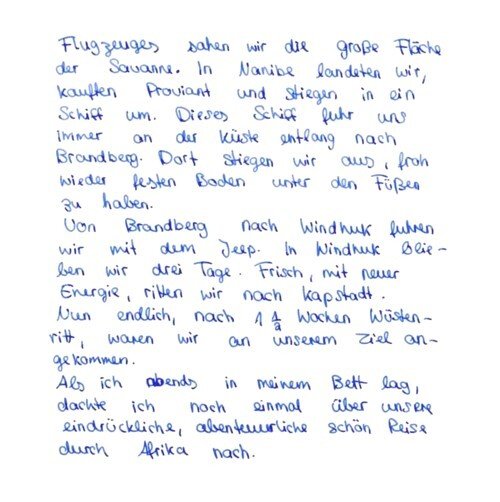 Flugzeuges sahen wir die große Fläche
der Savanne. In Nanibe landeten wir,
kauften Proviant und stiegen in ein
Schiff um. Dieses Schiff fuhr uns
immer an der Küste entlang nach
Brandberg. Dort stiegen wir aus, froh
wieder festen Boden unter den Füßen
zu haben.
Von Brandberg nach Windhuk fuhren
wir mit dem Jeep. In Windhuk blie-
ben wir drei Tage. Frisch, mit neuer
Energie, ritten wir nach Kapstadt.
Nun endlich, nach 1 1/2 Wochen Wüsten-
ritt, waren wir an unserem Ziel an-
gekommen.
Als ich abends in meinem Bett lag,
dachte ich noch einmal über unsere
eindrückliche, abenteuerliche schön Reise
durch Afrika nach.